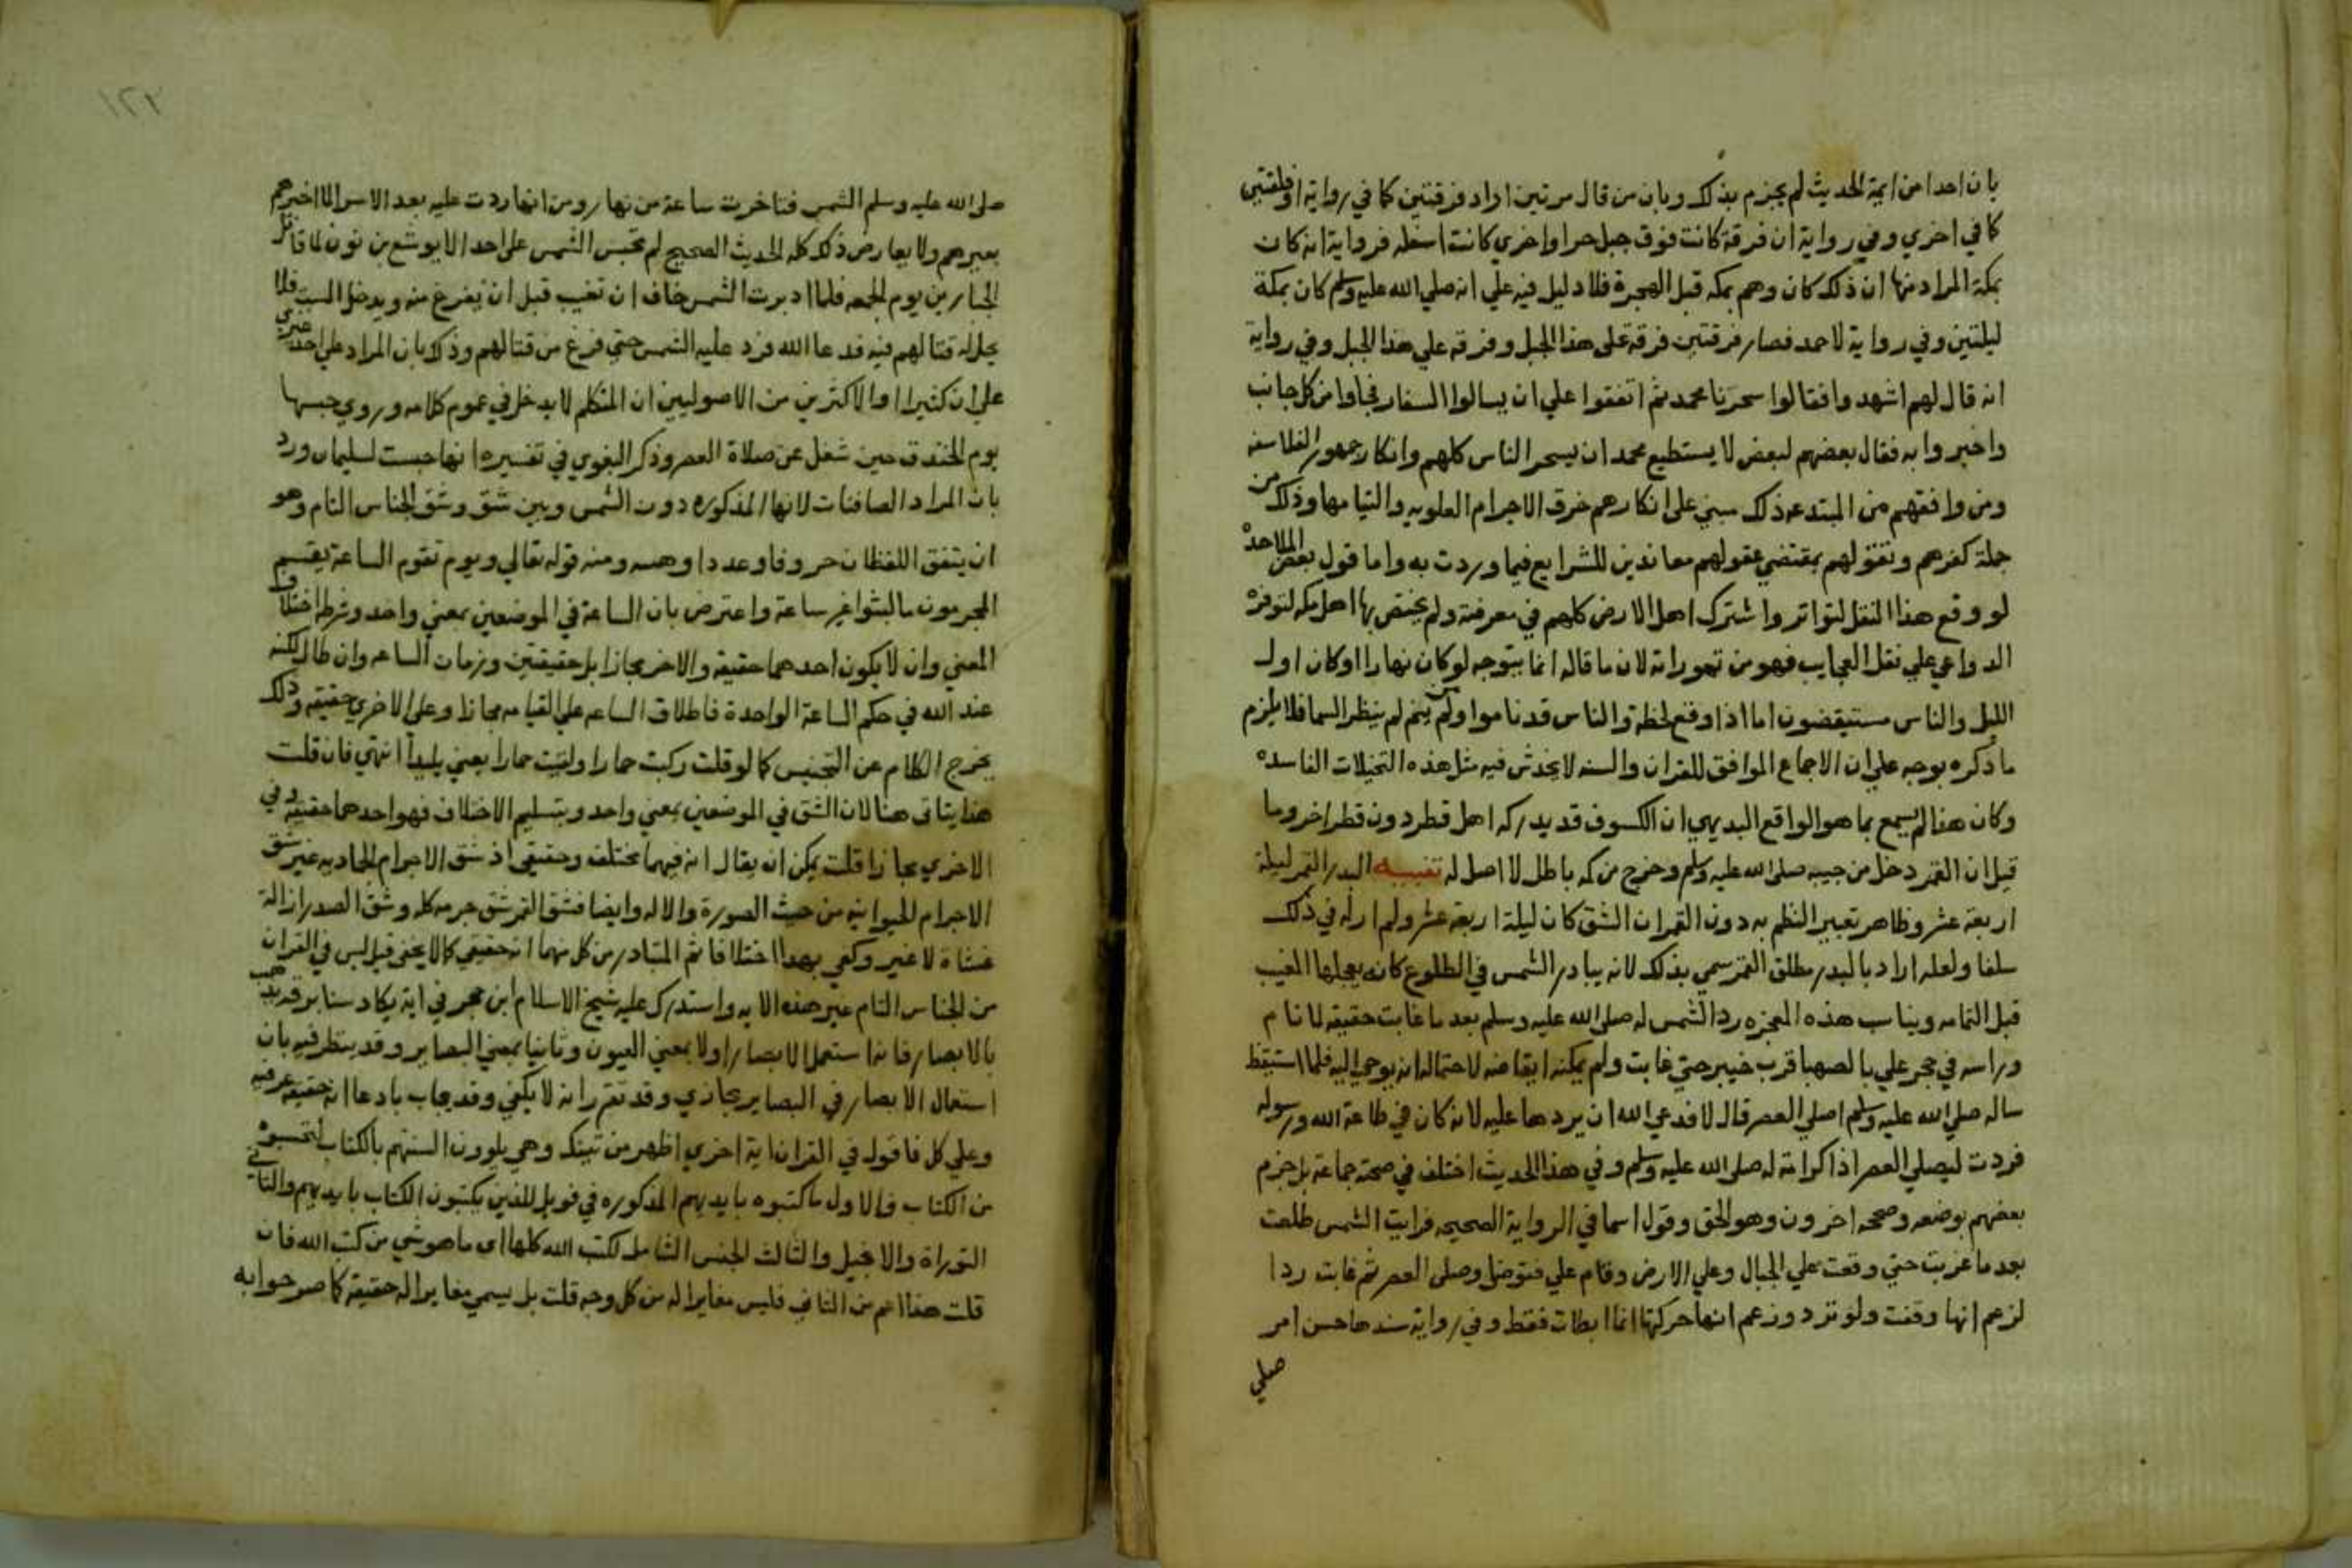 بان احدا من ايمة الحديث لم يجزم بذلك وبان من قال مرتين اراد فرقتين كما في رواية او فلقتين
كما في اخري وفي رواية ان فرقة كانت فوق جبل حرا واخري كانت اسفله فرواية انه كان
بمكة المراد منها ان ذلك كان وهم بمكه قبل الهجرة فلا دليل فيه علي انه صلي الله عليه وسلم كان بمكة
ليلتين وفي رواية لاحمد فصار فرقتين فرقة على هذا الجبل وفرقه علي هذا الجبل وفي رواية
انه قال لهم اشهدوا فقالوا سحرنا محمد ثم اتفقوا علي ان يسالوا السفار فجاوا من كل جانب
واخبروا به فقال بعضهم لبعض لا يستطيع محمد ان يسحر الناس كلهم وانكار جمهور الفلاسفه
ومن وافقهم من المبتدعه ذلك مبني على انكارهم خرق الاجرام العلويه والتيامها وذلك من
جملة كفرهم وتقولهم بمقتضي عقولهم معاندين للشرايع فيما وردت به واما قول بعض الملاحدة
لو وقع هذا النقل لتواتر واشترك اهل الارض كلهم في معرفته ولم يختص بها اهل مكه لتوفر
الدواعي علي نقل العجايب فهو من تهوراته لان ما قاله انما يتوجه لو كان نهارا او كان اول
الليل والناس مستيقضون اما اذا وقع لحظة والناس قد ناموا ومن لم ينم لم ينظر السما فلا يلزم
ما ذكره بوجه علي ان الاجماع الموافق للقران والسنه لا يخدش فيه مثل هذه التخيلات الفاسده
وكان هذا لم يسمع بما هو الواقع البديهي ان الكسوف قد يدركه اهل قطر دون قطر اخر وما
قيل ان القمر دخل من جيبه صلى الله عليه وسلم وخرج من كمه باطل لا اصل له تنبيه البدر القمر ليلة
اربعة عشر وظاهر تعبير النظم به دون القمر ان الشق كان ليلة اربعة عشر ولم ار له في ذلك
سلفا ولعله اراد بالبدر مطلق القمر سمي بذلك لانه يبادر الشمس في الطلوع كانه يعجلها المغيب
قبل التمامه ويناسب هذه المعجزه رد الشمس له صلى الله عليه وسلم بعد ما غابت حقيقه لما نام
وراسه في حجر علي بالصهبا قرب خيبر حتي غابت ولم يمكنه ايقاضه لاحتمال انه يوحي اليه فلما استيقظ
ساله صلي الله عليه وسلم اصلي العصر قال لا فدعي الله ان يردها عليه لانه كان في طاعة الله ورسوله
فردت ليصلي العصر اذا كرامة له صلى الله عليه وسلم وفي هذا الحديث اختلف في صحته جماعة بل جزم
بعضهم بوضعه وصححه اخرون وهو الحق وقول اسما في الرواية الصحيحه فرايت الشمس طلعت
بعد ما غربت حتي وقعت علي الجبال وعلي الارض وقام علي فتوضا وصلى العصر ثم غابت ردا
لزعم انها وقفت ولو ترد وزعم انها حركتها انما ابطات فقط وفي رواية سندها حسن امر
صلي
صلى الله عليه وسلم الشمس فتاخرت ساعة من نهار ومن انها ردت عليه بعد الاسرا لما اخبرهم
بعيرهم ولا يعارض ذلك كله الحديث الصحيح لم تحبس الشمس على احد الا يوشع بن نون لما قاتل
الجبارين يوم الجمعه فلما ادبرت الشمس خاف ان تغيب قبل ان يفرغ منه ويدخل السبت فلا
يحل له قتالهم فيه فدعا الله فرد عليه الشمس حتي فرغ من قتالهم وذلك بان المراد علي احد غيري
علي ان كثيرا او الاكثرين من الاصوليين ان المتكلم لا يدخل في عموم كلامه وروي حبسها
يوم الخندق حين شغل عن صلاة العصر وذكر البغوي في تفسيره انها حبست لسليمان ورد
بان المراد الصافنات لانها المذكوره دون الشمس وبين شق وشق الجناس التام وهو
ان يتفق اللفظان حروفا وعددا وهيه ومنه قوله تعالي ويوم تقوم الساعة يقسم
المجرمون ما لبثوا غير ساعة واعترض بان الساعة في الموضعين بمعني واحد وشرطه اختلاف
المعني وان لا يكون احدهما حقيقه والاخر مجازا بل حقيقتين وزمان الساعه وان طال لكنه
عند الله في حكم الساعة الواحدة فاطلاق الساعه علي القيامه مجازا وعلى الاخري حقيقه وذلك
يخرج الكلام عن التجنيس كما لو قلت ركبت حمارا ولقيت حمارا يعني بليدا انتهي فان قلت
هذا يتاتى هنا لان الشق في الموضعين بمعني واحد وبتسليم الاختلاف فهو احدهما حقيقه وفي
الاخري مجازا قلت يمكن ان يقال انه فيهما مختلف وحقيقي اذ شق الاجرام الجماديه غير شق
الاجرام الحيوانيه من حيث الصورة والاله وايضا فشق القمر شق جرمه كله وشق الصدر ازالة
غشاه لا غير وكفي بهدا اختلافا ثم المتبادر من كل منهما انه حقيقي كما لا يخفي قيل ليس في القران
من الجناس التام غير هذه الايه واستدرك عليه شيخ الاسلام ابن حجر في اية يكاد سنا برقه يذهب
بالابصار فانه استعمل الابصار اولا بمعني العيون وثانيا بمعني البصاير وقد ينظر فيه بان
استعمال الابصار في البصاير مجازي وقد تقرر انه لا يكفي وقد يجاب بادعا انه حقيقه عرفيه
وعلي كل فاقول في القران اية اخري اظهر من تينك وهي يلوون السنتهم بالكتاب لتحسبوه
من الكتاب فالاول ما كتبوه بايديهم المذكوره في فويل للذين يكتبون الكتاب بايديهم والثاني
التوراة والانجيل والثالث الجنس الشامل لكتب الله كلها اى ما هو شي من كتب الله فان
قلت هذا اعم من الثاني فليس مغايرا له من كل وجه قلت بل يسمي مغايرا له حقيقة كما صرحوا به
١٢٢